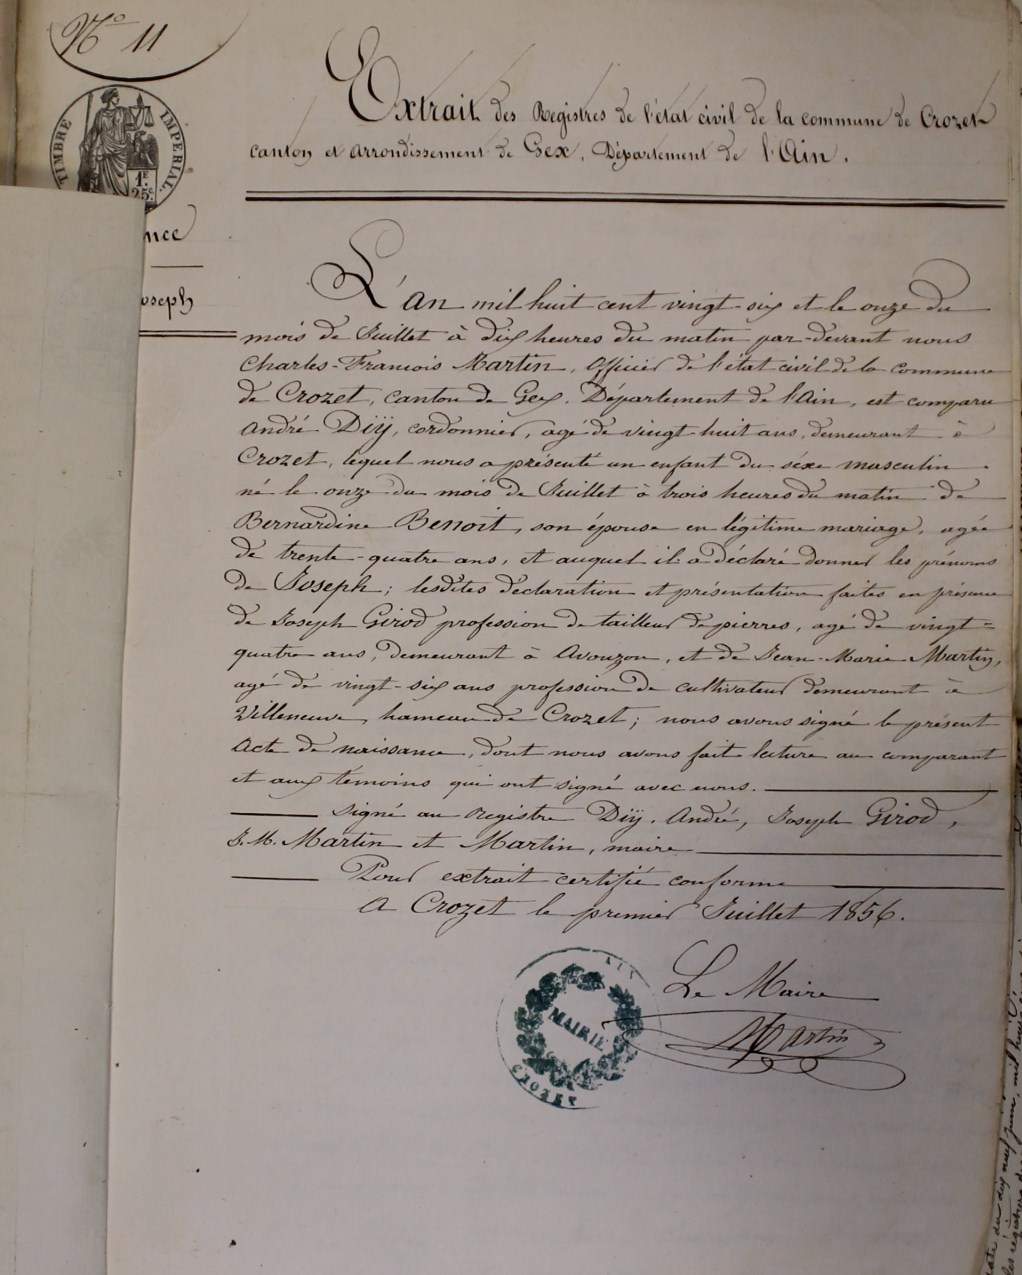 N° 11
TIMBRE IMPERIAL.
1F.
25c.
Extrait des Registres de l'état civil de la commune de Crozet
canton et arrondissement de Gex, Département de l'Ain.
nce
oseph
L'an mil huit cent vingt-six et le onze du
mois de Juillet à dix heures du matin par-devant nous
Charles-François Martin, officier de l'état civil de la commune
de Crozet, canton de Gex, Département de l'Ain, est comparu
André Dÿ, cordonnier, agé de vingt huit ans, demeurant à
Crozet, lequel nous a présenté un enfant du séxe masculin
né le onze du mois de Juillet à trois heures du matin de
Bernardine Benoit, son épouse en légitime mariage, agée
de trente-quatre ans, et auquel il a déclaré donner les prénoms
de Joseph; lesdites déclaration et présentation faites en présence
de Joseph Girod profession de tailleur de pierres, agé de vingt=
quatre ans, demeurant à Avouzon, et de Jean-Marie Martin,
agé de vingt-six ans profession de cultivateur demeurant à
Villeneuve, hameau de Crozet; nous avons signé le présent
Acte de naissance, dont nous avons fait lecture au comparant
et aux témoins qui ont signé avec nous.
signé au registre Dÿ. André, Joseph Girod,
J. M. Martin et Martin, maire
Pour extrait certifié conforme
A Crozet le premier Juillet 1856.
Le Maire
Martin
AIN
MAIRIE
CROZET